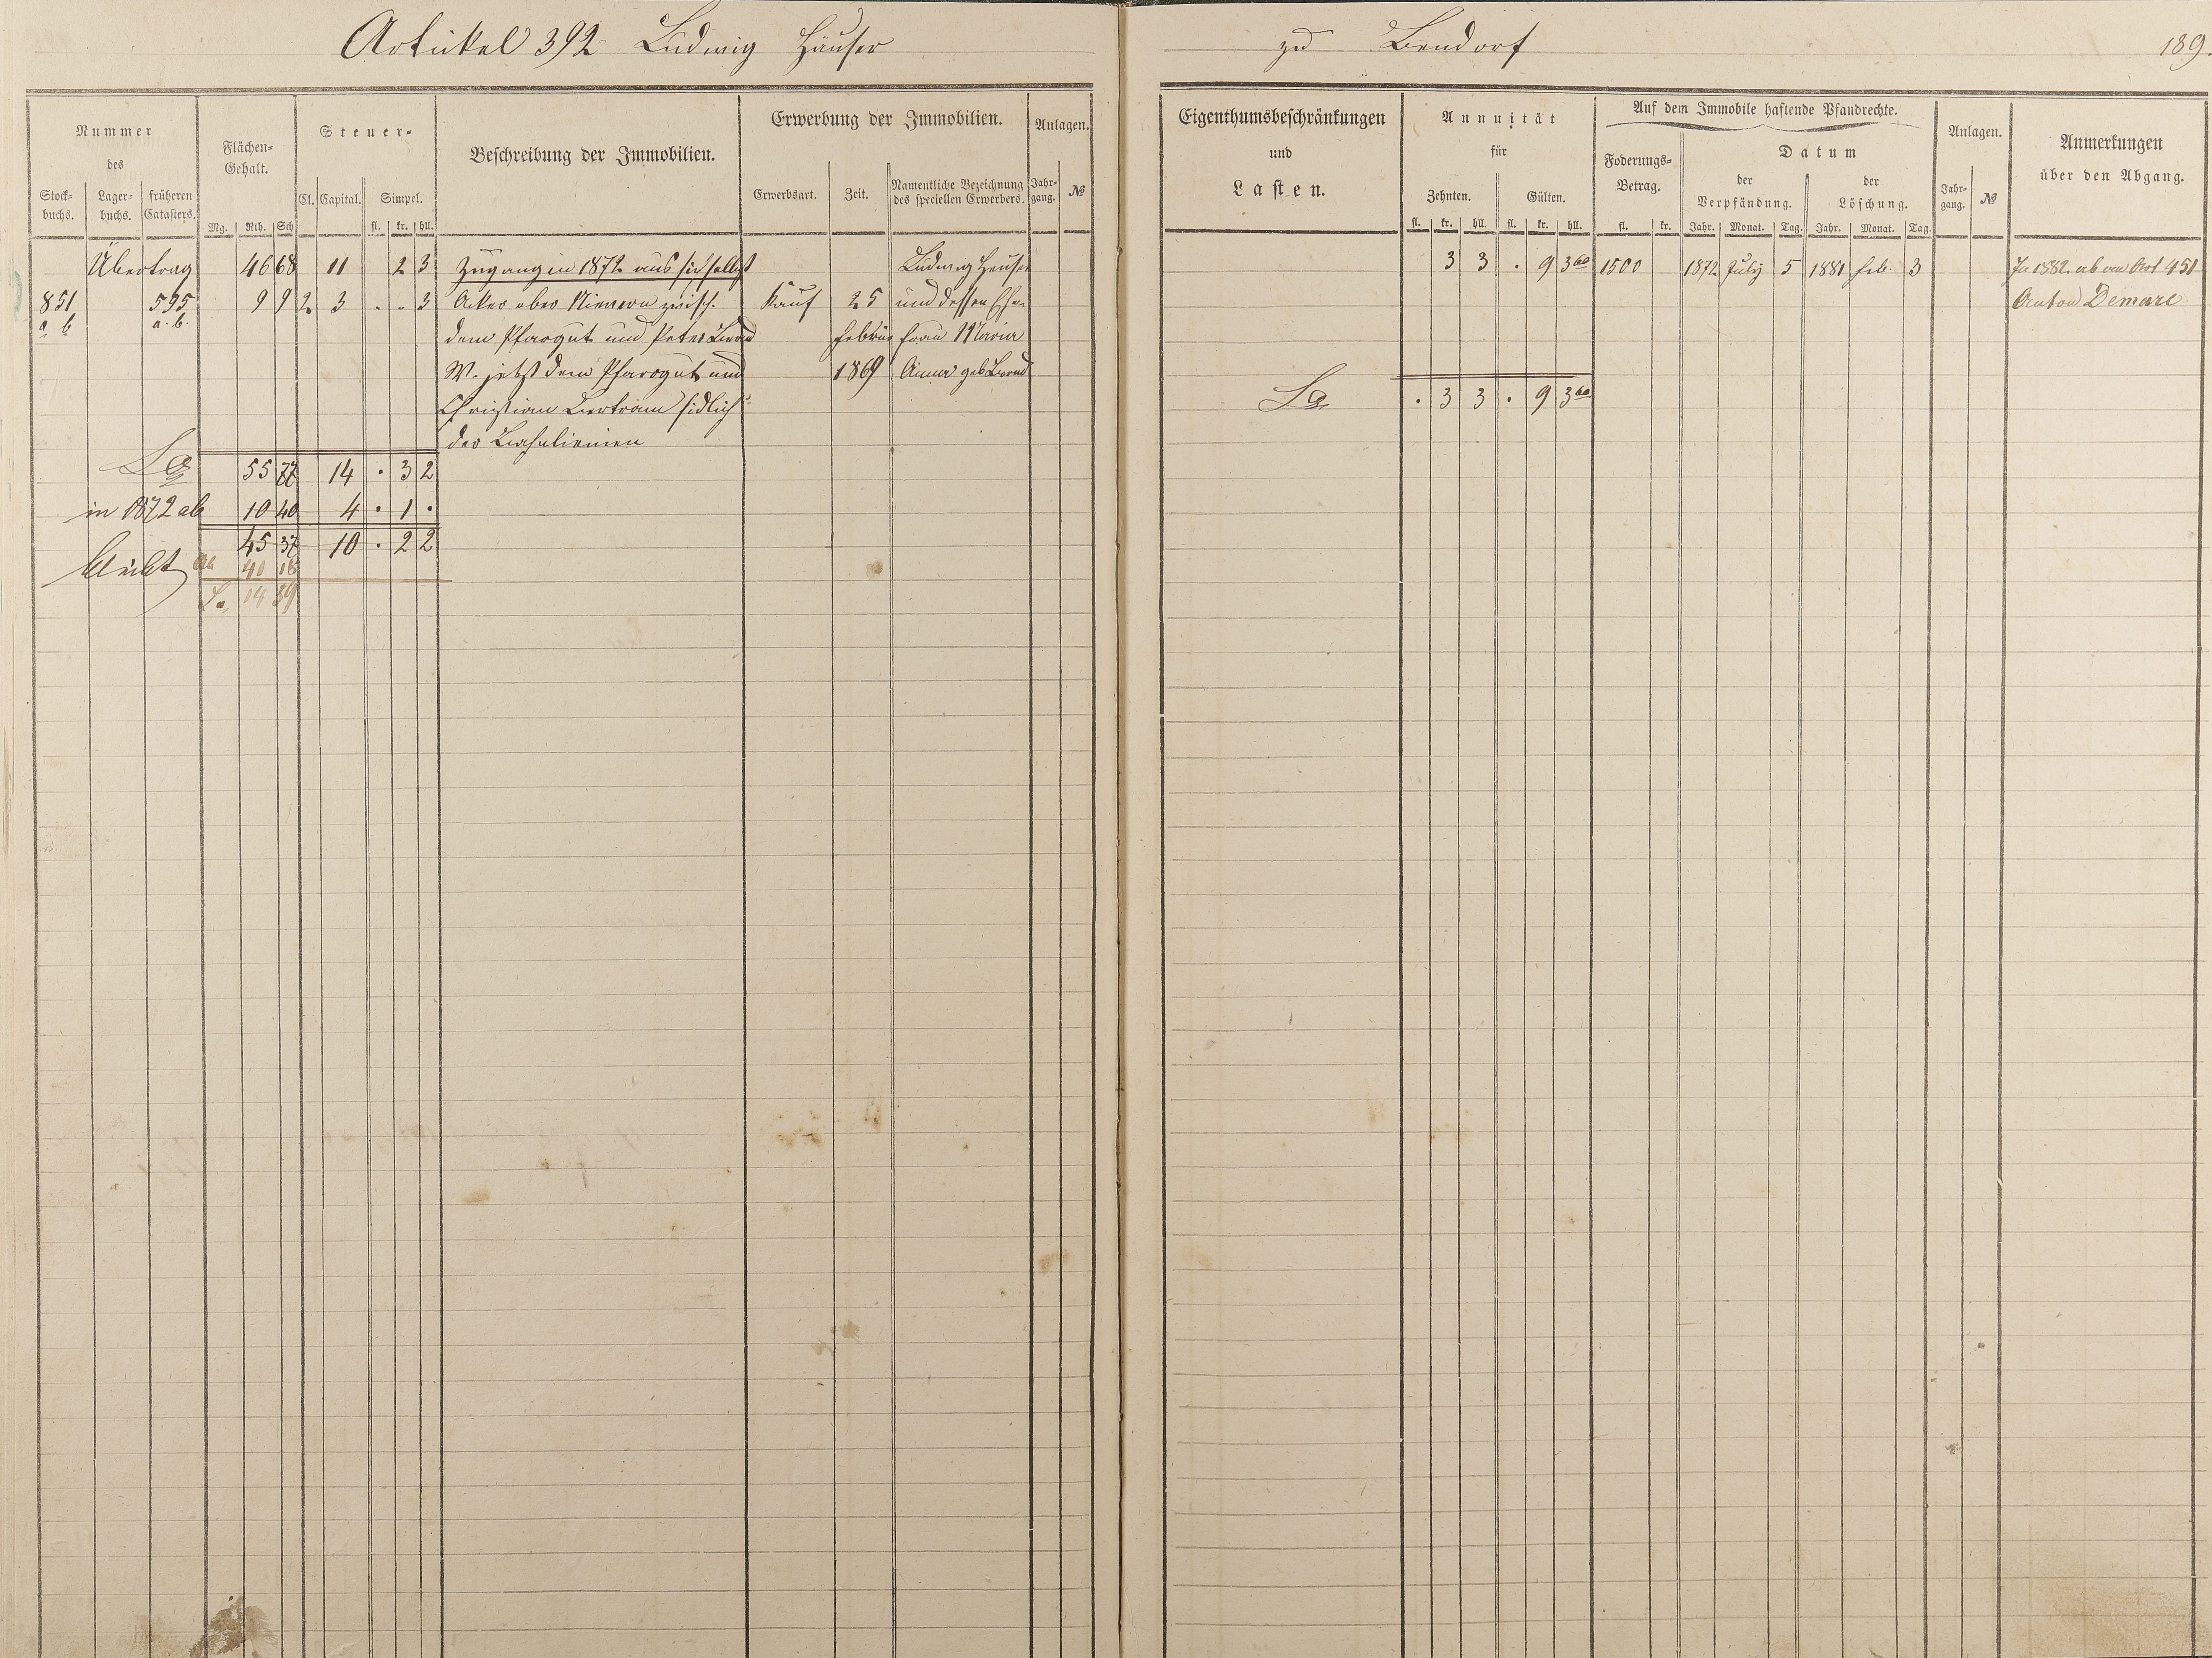 Artickel 392 Ludwig Häuser zu Bendorf 189.
Nummer des
Stock-buchs. Lager-buchs. früheren Catasters.
Flächen-Gehalt.
Mg. Rth. Sch
Steuer-
Cl. Capital. Simpel.
fl. kr. hll.
Beschreibung der Immobilien.
Erwerbung der Immobilien.
Erwerbsart. Zeit. Namentliche Bezeichnung des speciellen Erwerbers.
Anlagen.
Jahr-gang. №
Übertrag 46 68 11 2 3 Zugang in 1872 aus sich selbst Ludwig Heuser
851 595 9 9 2 3 . . 3 Acker ober Nievern zwisch. Kauf 25 und dessen Ehe-
a b a. b. dem Pfarrgut und Peter Februar frau Maria
W. jetzt dem Pfarrgut und 1869 Anna geb
Christian Bertram sidlich
der Bahnlienien
Sa 55 77 14 . 3 2
in 1872 ab 10 40 4 . 1 .
bleibt 45 37 10 . 2 2
41 18
Sa. 14 59
Eigenthumsbeschränkungen und Lasten.
Annuität für
Zehnten. Gülten.
fl. kr. hll. fl. kr. hll.
Auf dem Immobile haftende Pfandrechte.
Foderungs-Betrag.
fl. kr.
Datum
der Verpfändung. der Löschung.
Jahr. Monat. Tag. Jahr. Monat. Tag.
Anlagen.
Jahr-gang. №
Anmerkungen über den Abgang.
3 3 . 9 3 60 1500 1872 July 5 1881 Feb. 3 In 1882 ab an Art 451
Anton Demare
Sa . 3 3 . 9 3 60